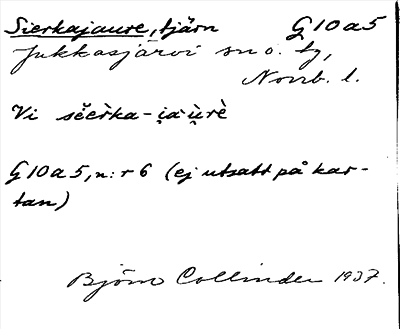 Sierkajaure, tjärn G10a5
Jukkasjärvi sn o. by,
Norrb. l.
Vi sĕer̀ka-i̯a'ụ̀rè
G10a5, n:r 6 (ej utsatt på kar-
tan)
Björn Collinder 1937.